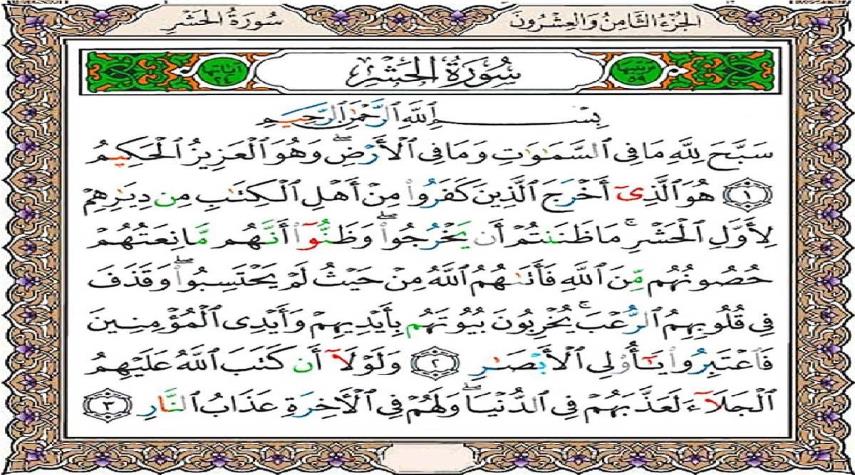 الجزء الثامن والعشرون سورة الحشر
ترتيبها ٥٩ سُورَةُ الحَشْرِ آياتها ٢٤
بِسْمِ ٱللَّهِ ٱلرَّحْمَٰنِ ٱلرَّحِيمِ
سَبَّحَ لِلَّهِ مَا فِي ٱلسَّمَٰوَٰتِ وَمَا فِي ٱلْأَرْضِۖ وَهُوَ ٱلْعَزِيزُ ٱلْحَكِيمُ
﴿١﴾ هُوَ ٱلَّذِىٓ أَخْرَجَ ٱلَّذِينَ كَفَرُوا۟ مِنْ أَهْلِ ٱلْكِتَٰبِ مِن دِيَٰرِهِمْ
لِأَوَّلِ ٱلْحَشْرِۚ مَا ظَنَنتُمْ أَن يَخْرُجُوا۟ۖ وَظَنُّوٓا۟ أَنَّهُم مَّانِعَتُهُمْ
حُصُونُهُم مِّنَ ٱللَّهِ فَأَتَىٰهُمُ ٱللَّهُ مِنْ حَيْثُ لَمْ يَحْتَسِبُوا۟ۖ وَقَذَفَ
فِي قُلُوبِهِمُ ٱلرُّعْبَۚ يُخْرِبُونَ بُيُوتَهُم بِأَيْدِيهِمْ وَأَيْدِى ٱلْمُؤْمِنِينَ
فَٱعْتَبِرُوا۟ يَٰٓأُو۟لِى ٱلْأَبْصَٰرِ ﴿٢﴾ وَلَوْلَآ أَن كَتَبَ ٱللَّهُ عَلَيْهِمُ
ٱلْجَلَآءَ لَعَذَّبَهُمْ فِي ٱلدُّنْيَاۖ وَلَهُمْ فِي ٱلْـَٔاخِرَةِ عَذَابُ ٱلنَّارِ ﴿٣﴾